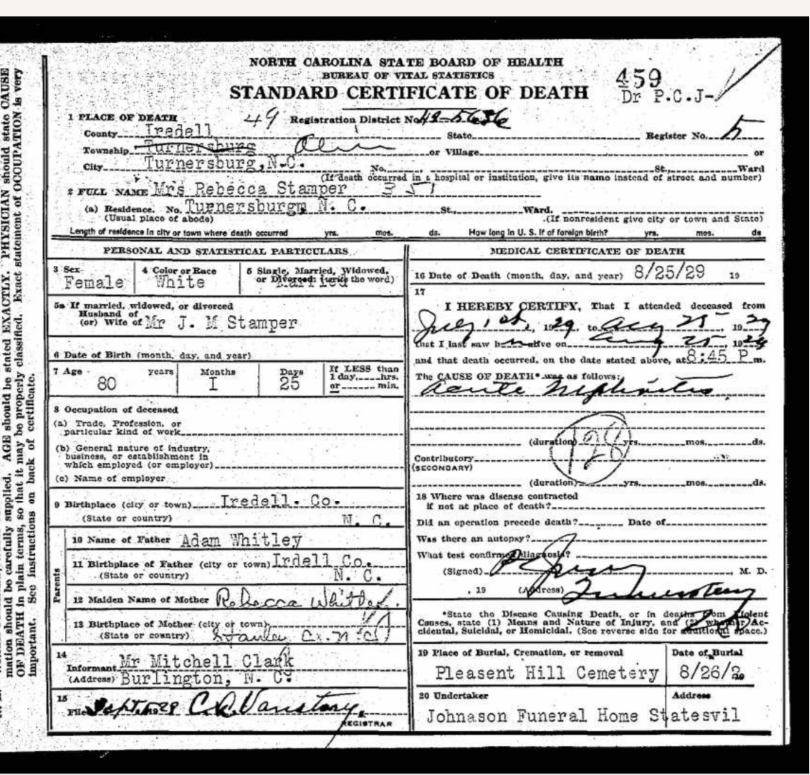 NORTH CAROLINA STATE BOARD OF HEALTH
BUREAU OF VITAL STATISTICS
STANDARD CERTIFICATE OF DEATH
459
Dr P.C.J-
1 PLACE OF DEATH 49 Registration District No.
County Iredell State Register No. 5
Township Turnersburg Olin or Village or
City Turnersburg, N.C. No. St., Ward
(If death occurred in a hospital or institution, give its name instead of street and number)
2 FULL NAME Mrs Rebecca Stamper 351
(a) Residence. No. Turnersburgm N. C. St., Ward.
(Usual place of abode) (If nonresident give city or town and State)
Length of residence in city or town where death occurred yrs. mos. ds. How long in U. S. if of foreign birth? yrs. mos. ds
PERSONAL AND STATISTICAL PARTICULARS
3 Sex 4 Color or Race 5 Single, Married, Widowed,
or Divorced (write the word)
Female White Married
5a If married, widowed, or divorced
Husband of
(or) Wife of Mr J. M Stamper
6 Date of Birth (month, day, and year)
7 Age years Months Days If LESS than
1 day, hrs.
or min.
80 I 25
8 Occupation of deceased
(a) Trade, Profession, or
particular kind of work
(b) General nature of industry,
business, or establishment in
which employed (or employer)
(c) Name of employer
9 Birthplace (city or town) Iredell. Co.
(State or country) N. C.
Parents
10 Name of Father Adam Whitley
11 Birthplace of Father (city or town) Irdell Co.
(State or country) N. C.
12 Maiden Name of Mother Rebecca Whitley.
13 Birthplace of Mother (city or town)
(State or country) Stanley Co. N C
14
Informant Mr Mitchell Clark
(Address) Burlington, N. C.
15
Filed Sept. 1929 C.R. Vanstory,
REGISTRAR
MEDICAL CERTIFICATE OF DEATH
16 Date of Death (month, day, and year) 8/25/29 19
17
I HEREBY CERTIFY, That I attended deceased from
July 1st, 1929, to Aug 25, 1929
that I last saw h alive on Aug 25, 1929
and that death occurred, on the date stated above, at 8:45 P m.
The CAUSE OF DEATH* was as follows:
acute nephritis
(duration) yrs. mos. ds.
128
Contributory
(SECONDARY)
(duration) yrs. mos. ds.
18 Where was disease contracted
if not at place of death?
Did an operation precede death? Date of
Was there an autopsy?
What test confirmed diagnosis?
(Signed) M. D.
, 19 (Address) Turnersburg
*State the Disease Causing Death, or in deaths from Violent
Causes, state (1) Means and Nature of Injury, and (2) whether Ac-
cidental, Suicidal, or Homicidal. (See reverse side for additional space.)
19 Place of Burial, Cremation, or removal Date of Burial
Pleasent Hill Cemetery 8/26/2
20 Undertaker Address
Johnason Funeral Home Statesvil
mation should be carefully supplied. AGE should be stated EXACTLY. PHYSICIAN should state CAUSE
OF DEATH in plain terms, so that it may be properly classified. Exact statement of OCCUPATION is very
important. See instructions on back of certificate.